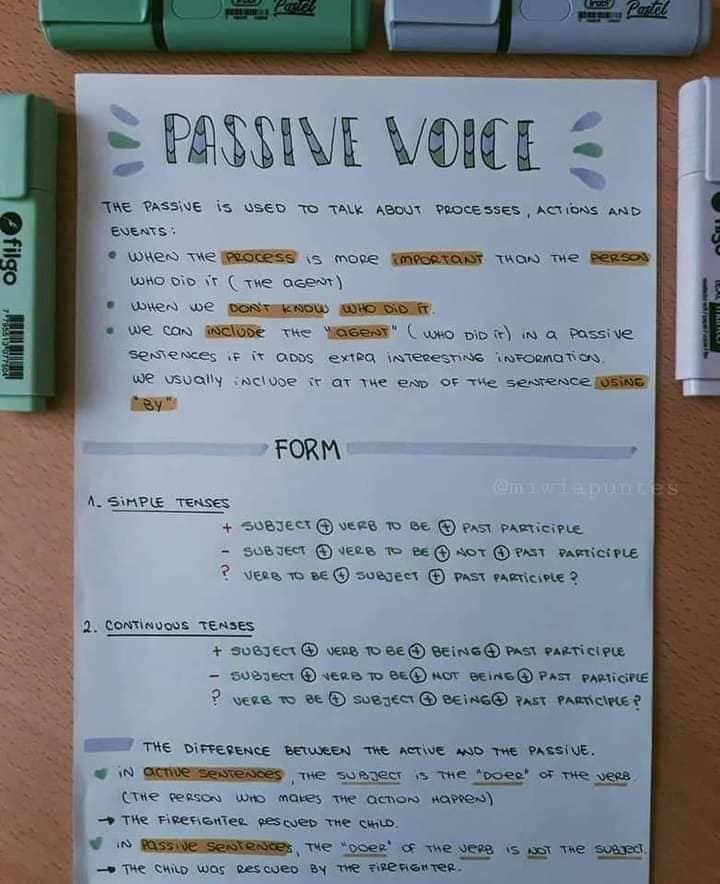 Pastel
Pastel
filgo
PASSIVE VOICE
THE PASSIVE IS USED TO TALK ABOUT PROCESSES, ACTIONS AND
EVENTS:
• WHEN THE PROCESS IS MORE IMPORTANT THAN THE PERSON
WHO DID IT (THE AGENT)
• WHEN WE DON'T KNOW WHO DID IT.
• WE CAN INCLUDE THE "AGENT" (WHO DID IT) IN A PASSIVE
SENTENCES IF IT ADDS EXTRA INTERESTING INFORMATION.
WE USUALLY INCLUDE IT AT THE END OF THE SENTENCE USING
"BY"
FORM
@miwiapuntes
1. SIMPLE TENSES
+ SUBJECT + VERB TO BE + PAST PARTICIPLE
- SUBJECT + VERB TO BE + NOT + PAST PARTICIPLE
? VERB TO BE + SUBJECT + PAST PARTICIPLE?
2. CONTINUOUS TENSES
+ SUBJECT + VERB TO BE + BEING + PAST PARTICIPLE
- SUBJECT + VERB TO BE + NOT BEING + PAST PARTICIPLE
? VERB TO BE + SUBJECT + BEING + PAST PARTICIPLE?
THE DIFFERENCE BETWEEN THE ACTIVE AND THE PASSIVE.
IN ACTIVE SENTENCES, THE SUBJECT IS THE "DOER" OF THE VERB.
(THE PERSON WHO MAKES THE ACTION HAPPEN)
→ THE FIREFIGHTER RESCUED THE CHILD.
IN PASSIVE SENTENCES, THE "DOER" OF THE VERB IS NOT THE SUBJECT.
→ THE CHILD WAS RESCUED BY THE FIREFIGHTER.